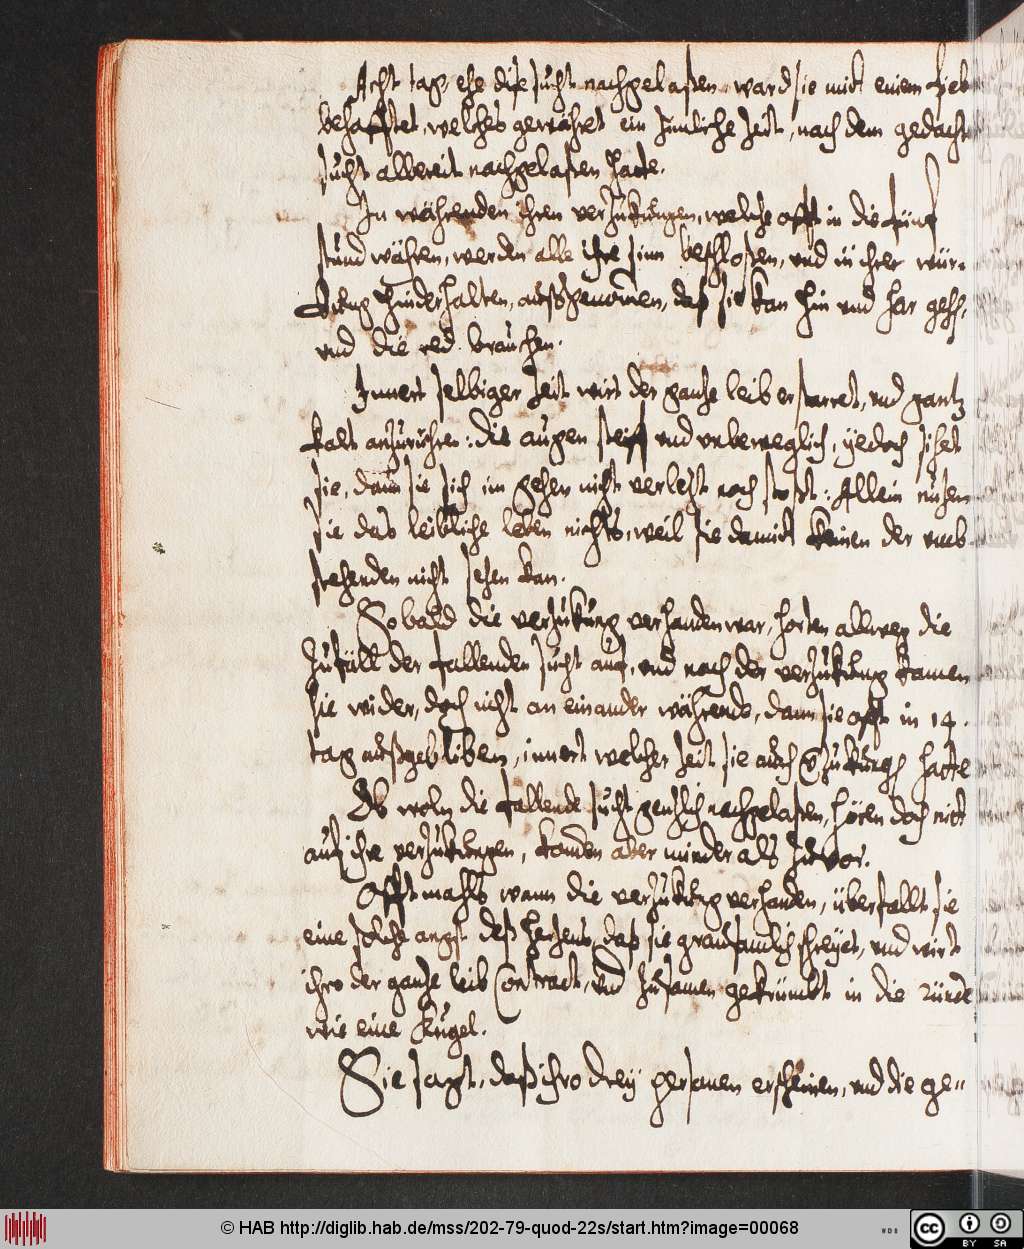 Acht tag, ehe dise sücht nachgelaßen ward sie mit einem Fieb
behafftet, welches gewähret ein zimliche Zeit, nach dem gedachte
sücht allbereit nachgelaßen hatte.
In währenden ihren verzükungen, welche offt in die fünf
stünd währen, werden alle ihre sinn beschloßen, und in ihrer würkung hinderhalten, außgenomen, daß sie kan hin und har gehn,
und die red brauchen.
Innert selbiger Zeit wirt der ganze leib erstarret, und gantz
kalt anzurühren: die augen steiff und unbeweglich, yedoch sihet
sie, dann sie sich im gehen nicht verlezt noch stoßt: Allein nüzen
sie das leibliche leben nichts, weil sie damit keinen der umbstehenden nicht sehen kan.
So bald die verzükung verhanden war, horten allweg die
Zufäll der fallenden sücht auf, und nach der verzükung kamen
sie wider, doch nicht an einander währends, dann sie offt in 14.
tag außgebliben, innert welcher Zeit sie auch verzükungen hatte
Ob woln die fallende sücht genzlich nachgelaßen, hören doch nicht
auf ihre verzükungen, komden aber minder als zuvor.
Offtmahls wann die verzükung verhanden, überfallt sie
eine solche angst deß herzens, daß sie grausamlich schreyet, und wirt
ihro der ganze leib Contract, und zusamen gekrümbt in die ründe
wie eine Kugel.
Sie sagt, daß ihro drey personen erscheinen, und die ge=
© HAB http://diglib.hab.de/mss/202-79-quod-22s/start.htm?image=00068
WDB
cc BY SA